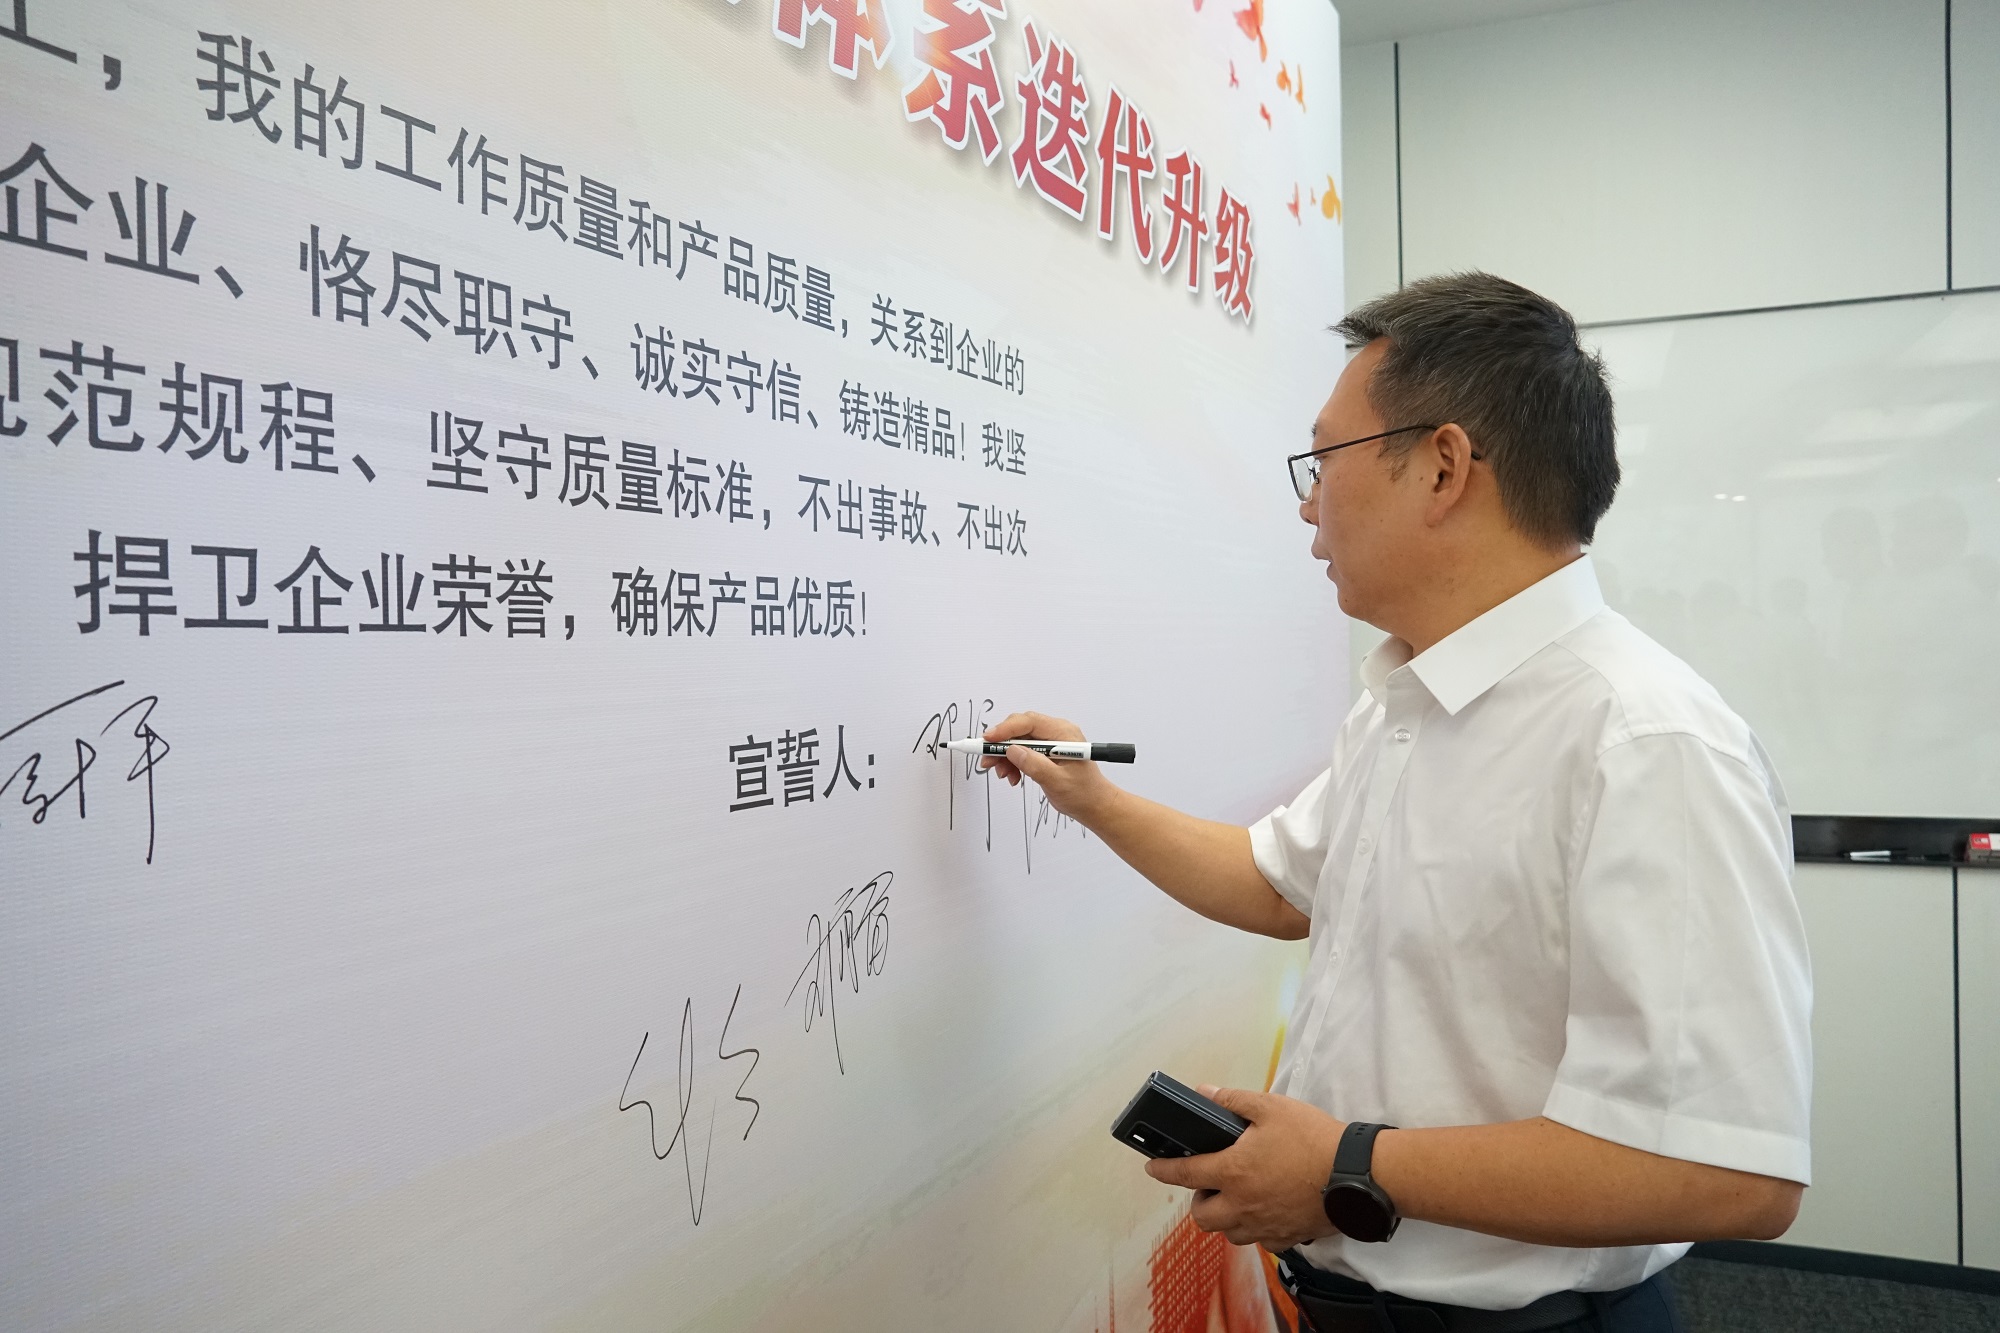 体系迭代升级
上，我的工作质量和产品质量，关系到企业的
企业、恪尽职守、诚实守信、铸造精品！我坚
规范规程、坚守质量标准，不出事故、不出次
捍卫企业荣誉，确保产品优质！
宣誓人：